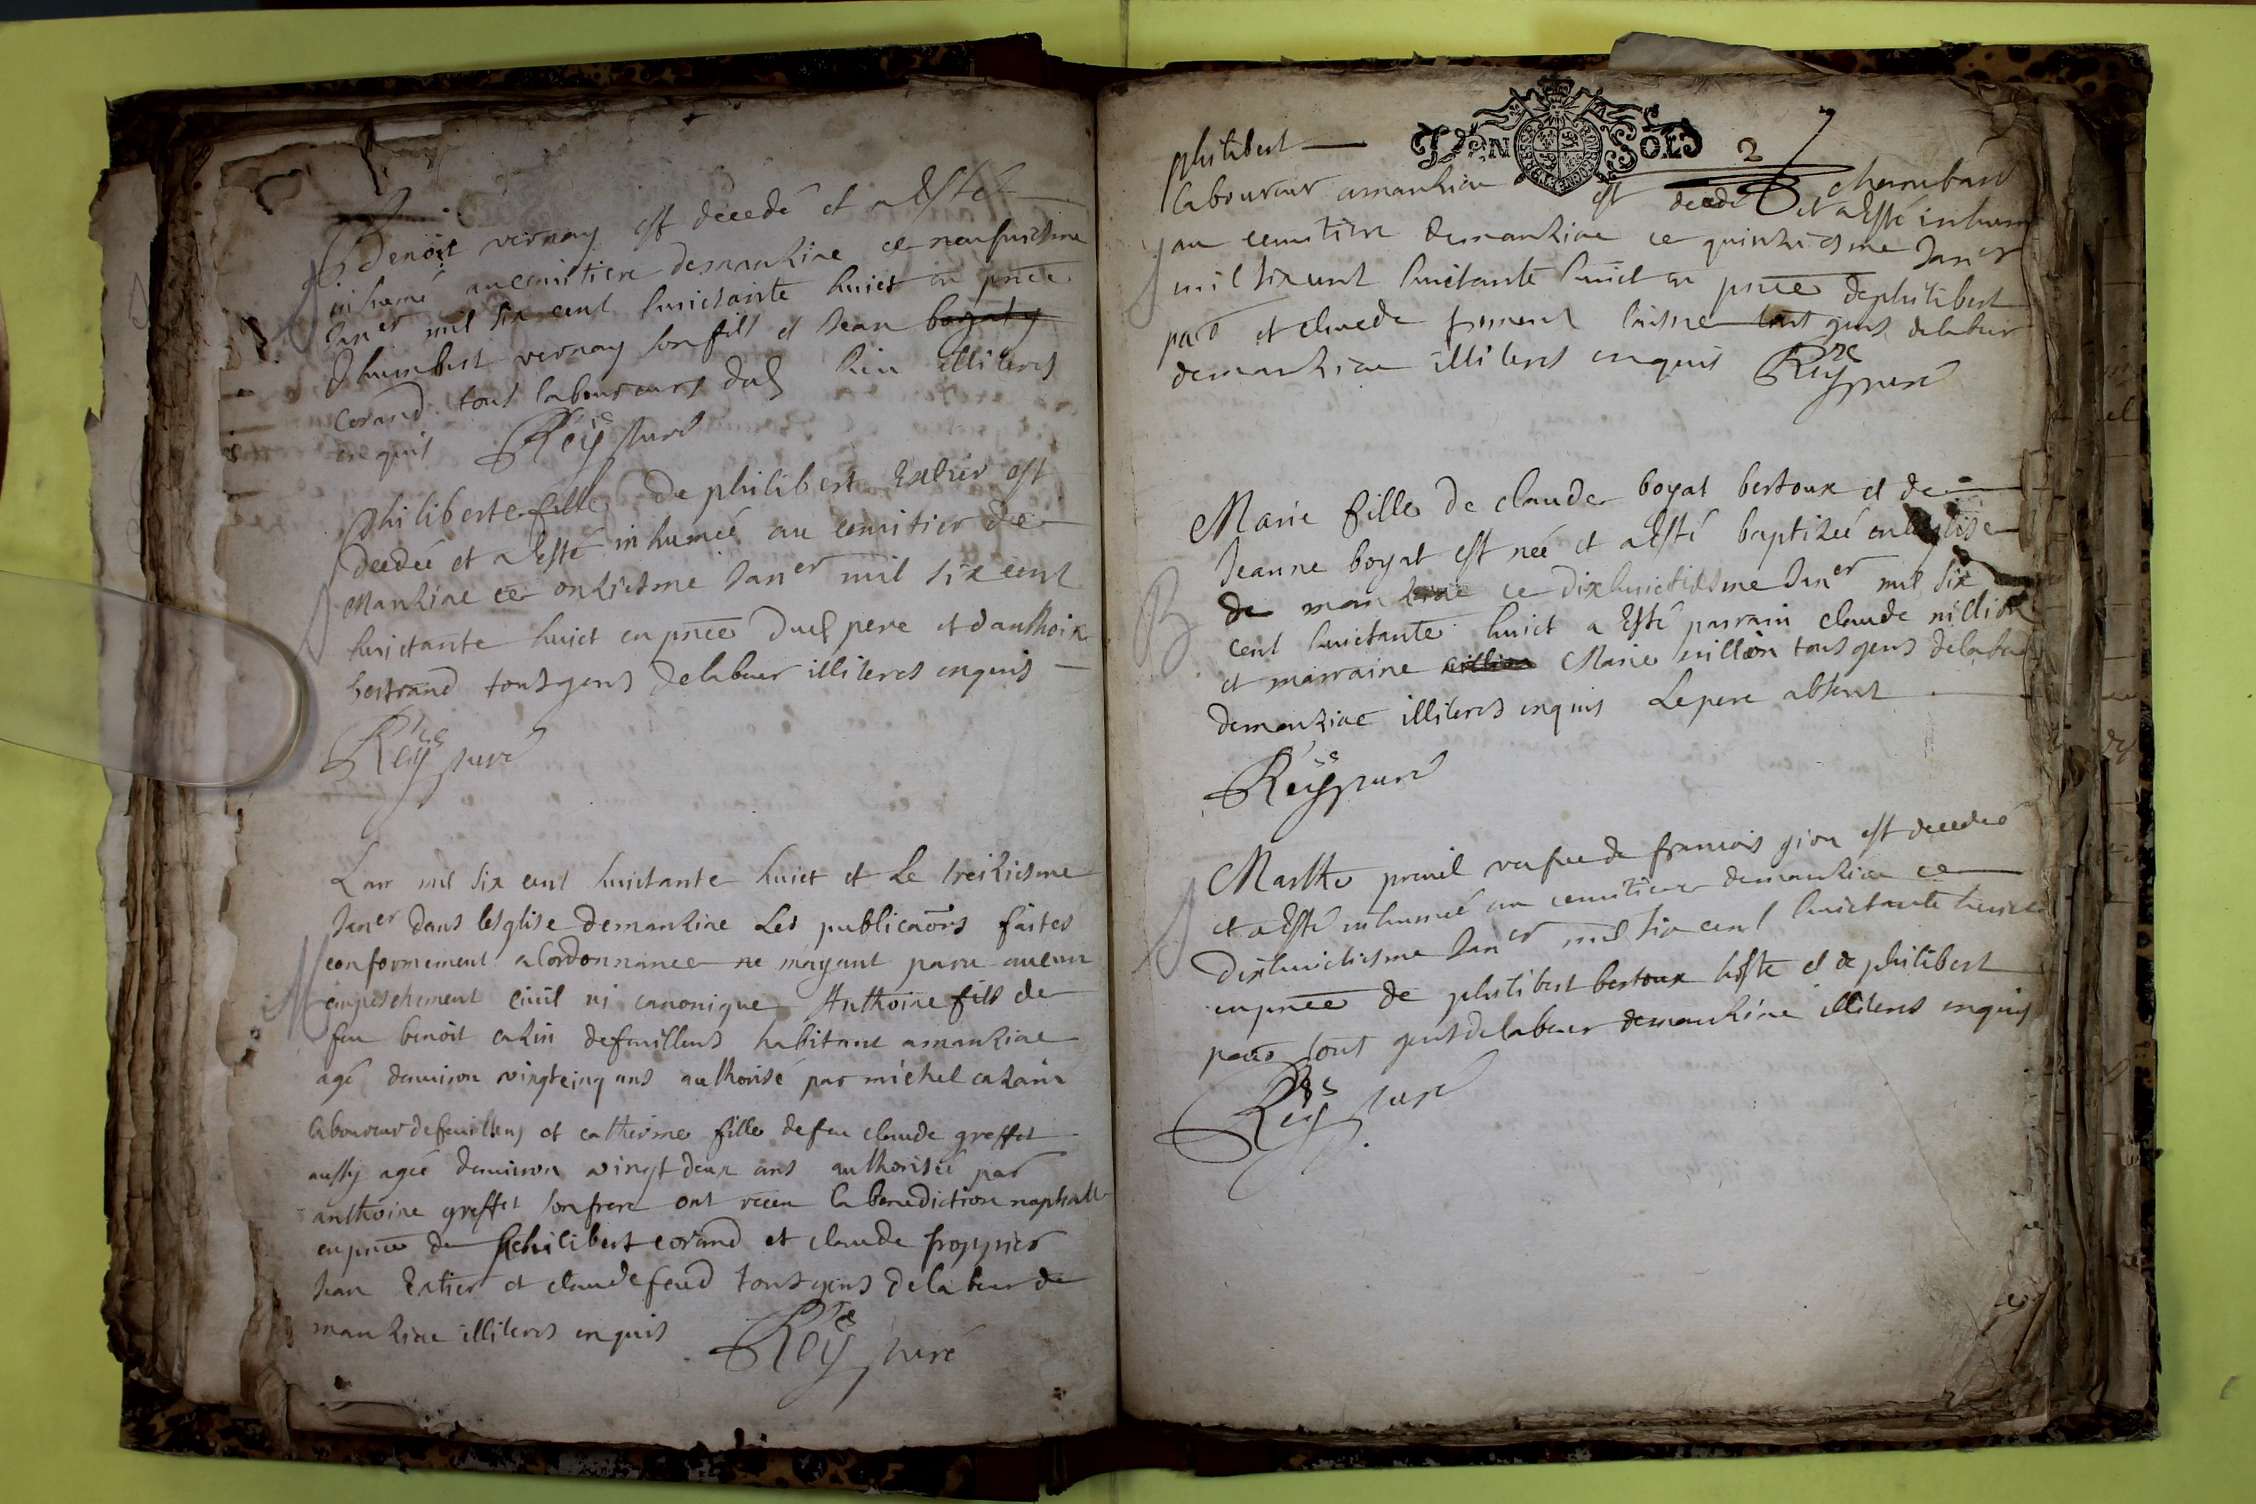 Benoit vernay est decedé et a Esté
inhumé au cemitiere demanziae ce neufuiesme
Janer mil six cent huictante huict en pnce
dhumbert vernay son fils et Jean
Corand tous laboureurs dud lieu illiteres
enquis Rey curé
Philiberte fille De philibert Extier est
decedée et a Esté inhumée au cemitier de
Manziae ce onziesme Janer mil six cent
huictante huict en pnce dud pere et danthoine
bertrand tous gens de labeur illiteres enquis
Rey curé
Lan mil six cent huictante huict et le treiziesme
Janer dans lesglise demanziae Les publicaons faites
conformement a lordonnance ne mayant paru aucun
empeschement ciuil ni canonique Anthoine fils de
feu benoit cazin defeuillens habitant amanziae
agé denuiron vingtcinq ans authorisé par michel cazain
laboureur defeuillens et catherine fille defeu claude greffet
aussy agée denuiron vingt deux ans authorisée par
anthoine greffet son frere ont receu la benediction nuptialle
en pnce de philibert corand et claude froppier
Jean Extier et claude feud tous gens de labeur de
manziae illiteres enquis Rey curé
philibert — DEN SOLS 2
laboureur amanziae est decedé et a Esté inhumé
au cemitiere demanziae ce quinziesme Janer
mil six cent huictante huict en pnce dephilibert
et claude tous gens delabeur
demanziae illiteres enquis Rey curé
Marie fille de claude boyat bertoux et de
Jeanne boyat est née et a Esté baptizée en lesglise
de manziae ce dixhuictiesme Janer mil six
cent huictante huict a Esté parrain claude nillion
et marraine Marie nillion tous gens delabeur
demanziae illiteres enquis Le pere absent
Rey curé
Marthe preuil vefue de francois gion est decedée
et a Esté inhumée au cemitiere demanziae ce
dixhuictiesme Janer mil six cent huictante huict
en pnce de philibert bertoux hoste et de philibert
tous gens delabeur demanziae illiteres enquis
Rey curé